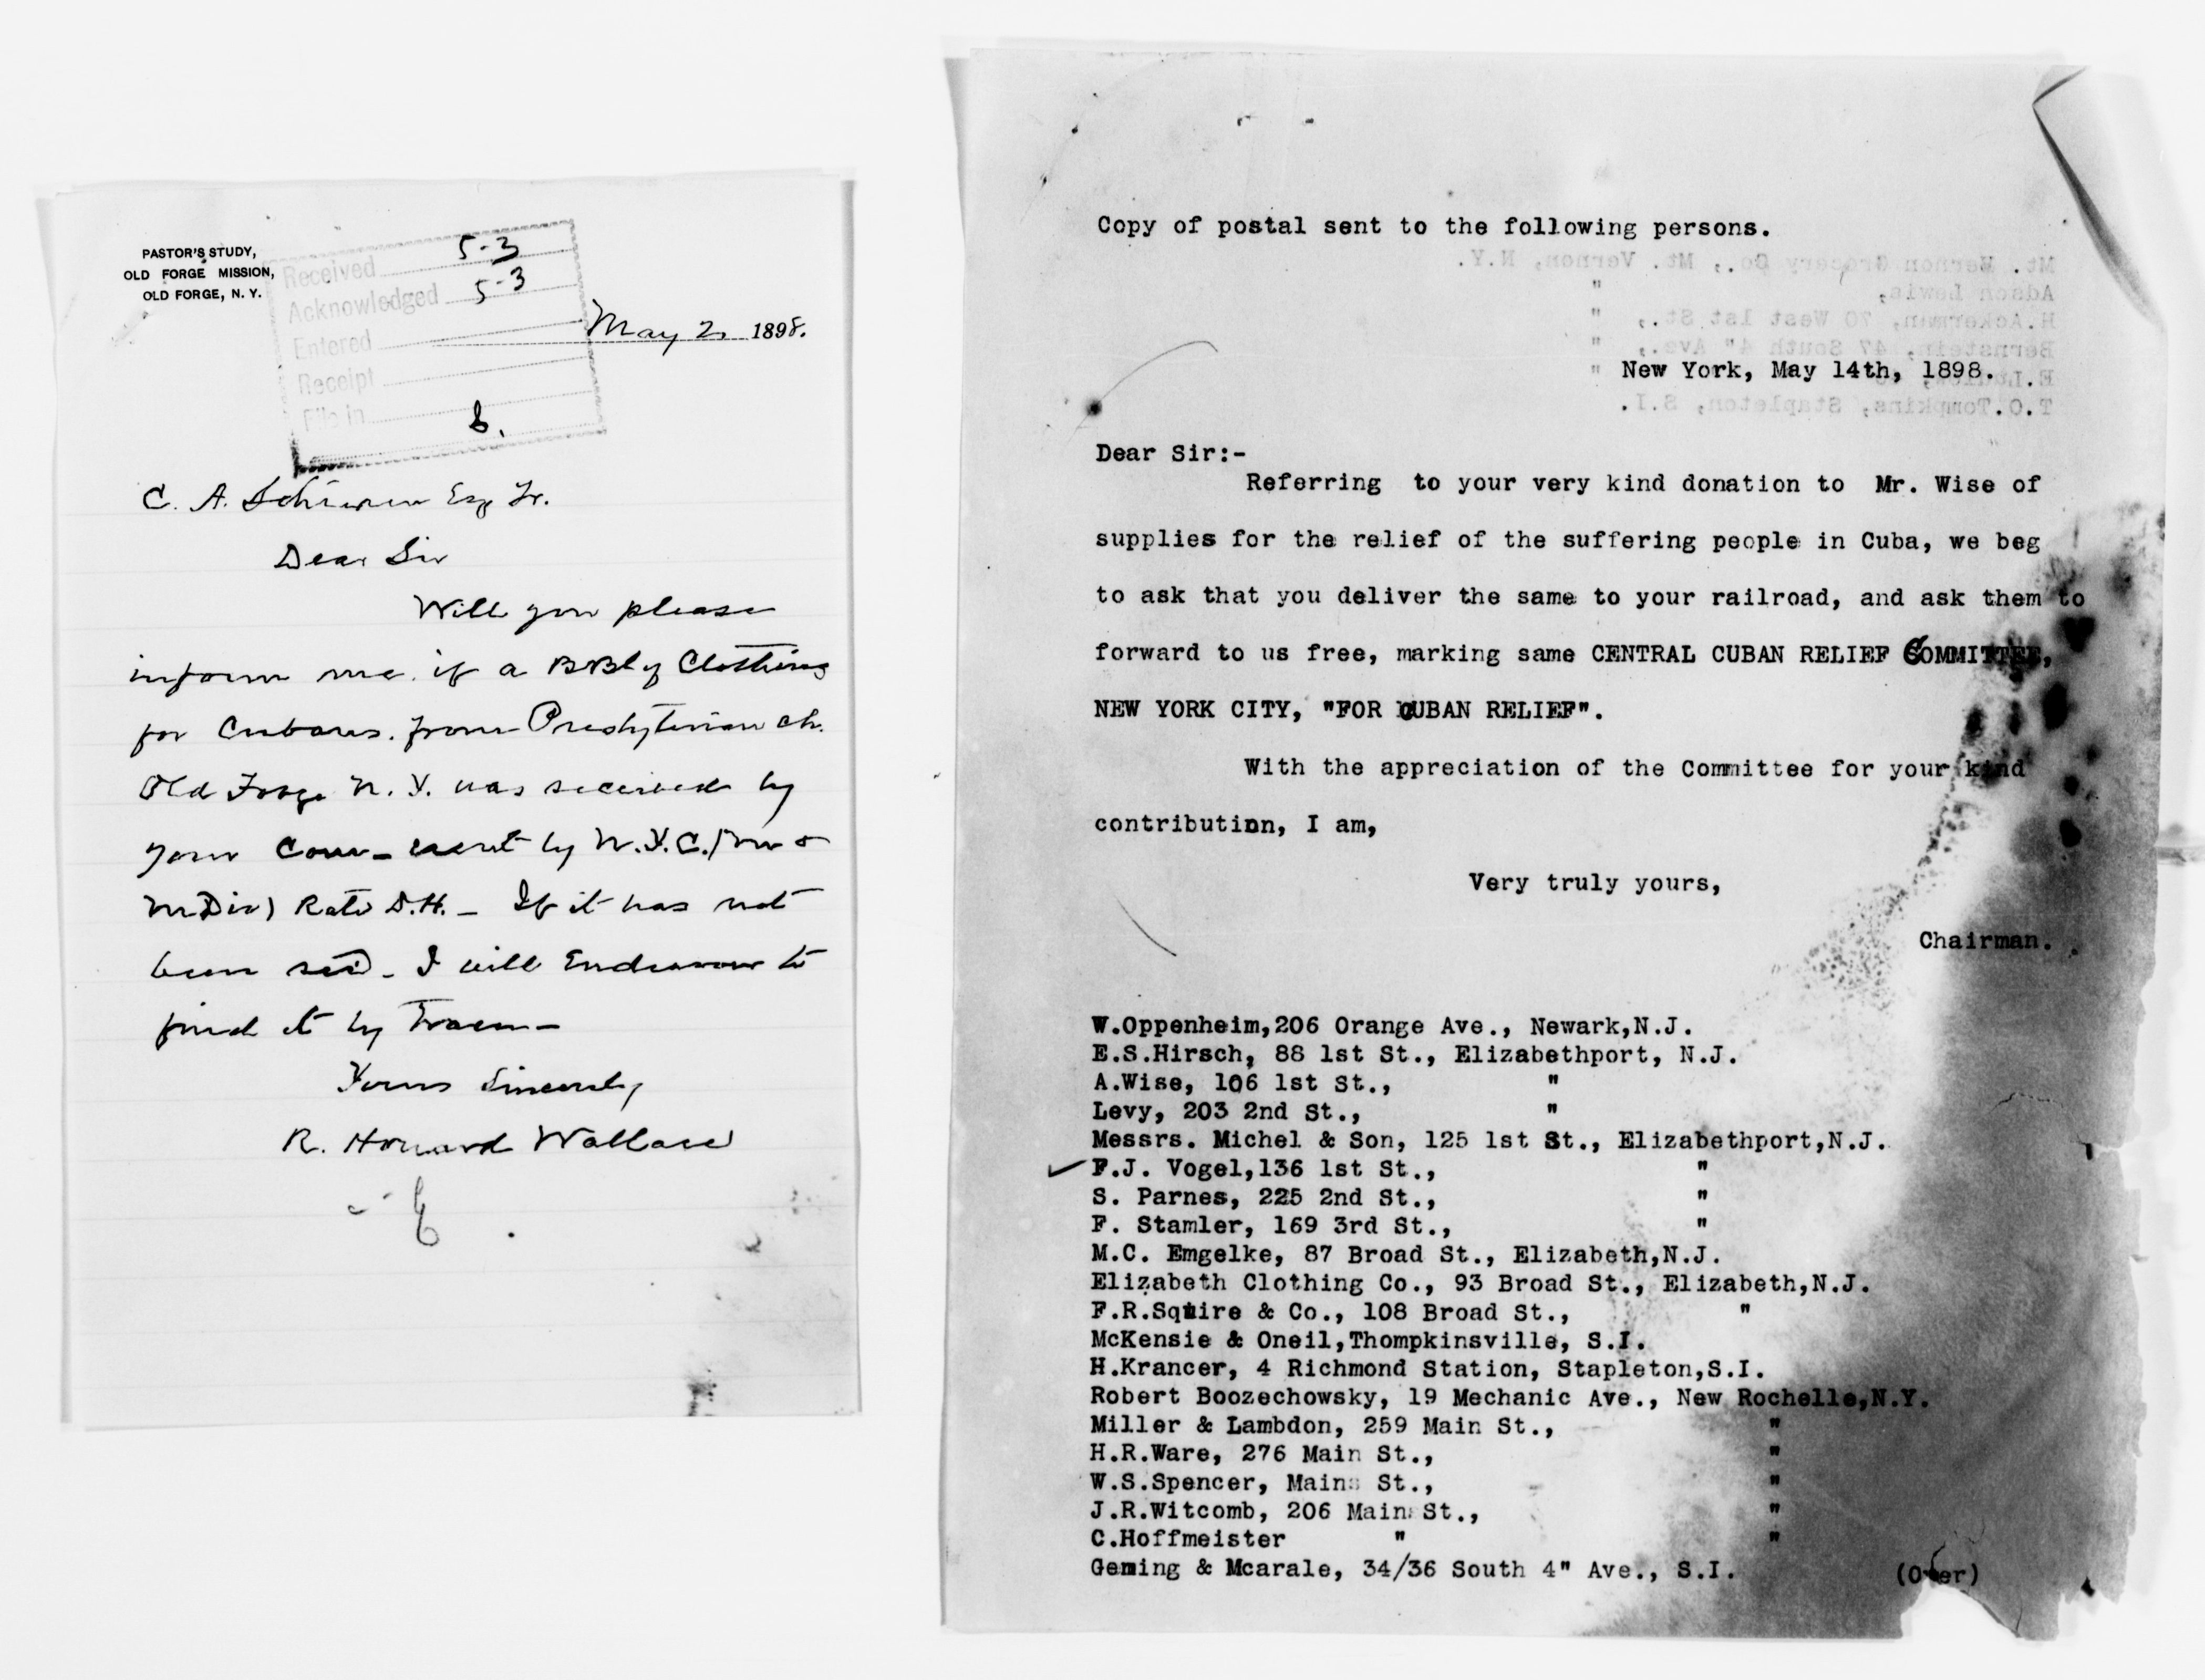 PASTOR'S STUDY,
OLD FORGE MISSION,
OLD FORGE, N. Y.
Received 5-3
Acknowledged 5-3
Entered
Receipt
File in
May 2 1898.
C. A. Esq Jr.
Dear Sir
Will you please
inform me if a BBl of Clothing
for Cubans from Presbyterian ch.
Old Forge N. Y. was received by
your Com - sent by N.Y.C. (
Div) Rate D.H. - If it has not
been - I will Endeavour to
find it by Tracer -
Yours Sincerely
R. Howard Wallace
Copy of postal sent to the following persons.
Mt. Vernon Grocery Co., Mt. Vernon, N.Y.
Adson Lewis, "
H.Ackerman, 70 West 1st St., "
Bernstein, 47 South 4" Ave., "
New York, May 14th, 1898.
T.O.Tompkins, Stapleton, S.I.
Dear Sir:-
Referring to your very kind donation to Mr. Wise of
supplies for the relief of the suffering people in Cuba, we beg
to ask that you deliver the same to your railroad, and ask them to
forward to us free, marking same CENTRAL CUBAN RELIEF COMMITTEE,
NEW YORK CITY, "FOR CUBAN RELIEF".
With the appreciation of the Committee for your kind
contribution, I am,
Very truly yours,
Chairman.
W.Oppenheim,206 Orange Ave., Newark,N.J.
E.S.Hirsch, 88 1st St., Elizabethport, N.J.
A.Wise, 106 1st St., "
Levy, 203 2nd St., "
Messrs. Michel & Son, 125 1st St., Elizabethport,N.J.
F.J. Vogel,136 1st St., "
S. Parnes, 225 2nd St., "
F. Stamler, 169 3rd St., "
M.C. Emgelke, 87 Broad St., Elizabeth,N.J.
Elizabeth Clothing Co., 93 Broad St., Elizabeth,N.J.
F.R.Squire & Co., 108 Broad St., "
McKensie & Oneil,Thompkinsville, S.I.
H.Krancer, 4 Richmond Station, Stapleton,S.I.
Robert Boozechowsky, 19 Mechanic Ave., New Rochelle,N.Y.
Miller & Lambdon, 259 Main St., "
H.R.Ware, 276 Main St., "
W.S.Spencer, Main St., "
J.R.Witcomb, 206 Main St., "
C.Hoffmeister " "
Geming & Mcarale, 34/36 South 4" Ave., S.I.
(Over)